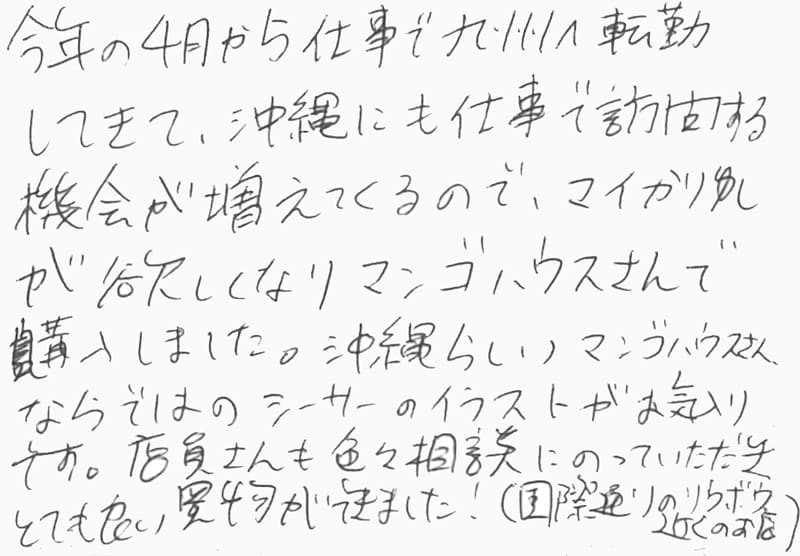 今年の4月から仕事で九州へ転勤
してきて、沖縄にも仕事で訪問する
機会が増えてくるので、マイかりゆし
が欲しくなりマンゴハウスさんで
購入しました。沖縄らしいマンゴハウスさん
ならではのシーサーのイラストがお気入り
です。店員さんも色々相談にのっていただき
とても良い買物ができました!(国際通りのリウボウ
近くのお店)